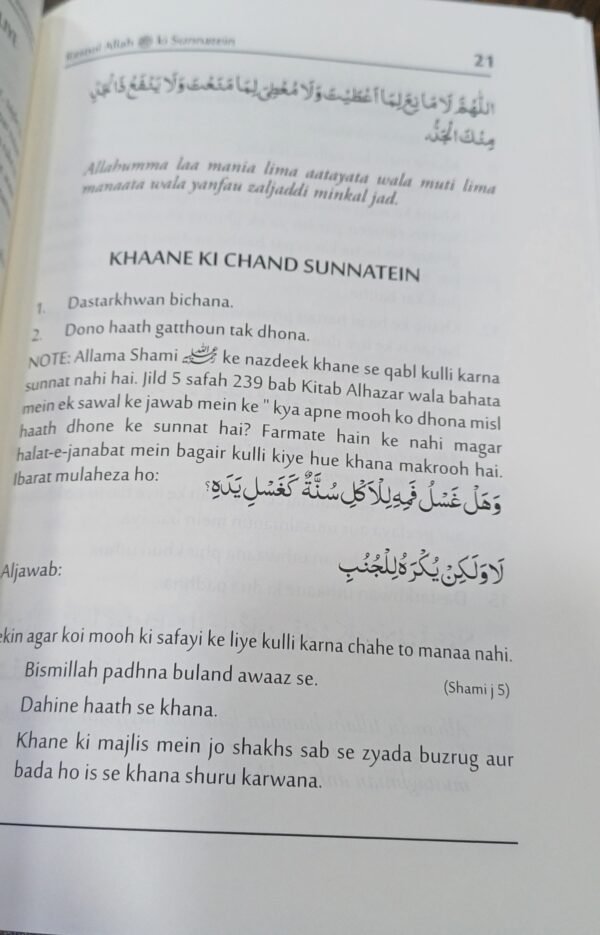 Rasool Allah ﷺ ki Sunnatein
21
اللّٰهُمَّ لَا مَانِعَ لِمَا اَعْطَيْتَ وَلَا مُعْطِىَ لِمَا مَنَعْتَ وَلَا يَنْفَعُ ذَا الْجَدِّ
مِنْكَ الْجَدُّ.
Allahumma laa mania lima aatayata wala muti lima
manaata wala yanfau zaljaddi minkal jad.
KHAANE KI CHAND SUNNATEIN
1. Dastarkhwan bichana.
2. Dono haath gatthoun tak dhona.
NOTE: Allama Shami ke nazdeek khane se qabl kulli karna
sunnat nahi hai. Jild 5 safah 239 bab Kitab Alhazar wala bahata
mein ek sawal ke jawab mein ke " kya apne mooh ko dhona misl
haath dhone ke sunnat hai? Farmate hain ke nahi magar
halat-e-janabat mein bagair kulli kiye hue khana makrooh hai.
Ibarat mulaheza ho:
وَهَلْ غَسْلُ فَمِهٖ لِلْاَكْلِ سُنَّةٌ كَغَسْلِ يَدَهٖ؟
Aljawab:
لَا وَلَكِنْ يُكْرَهُ لِلْجُنُبِ
ekin agar koi mooh ki safayi ke liye kulli karna chahe to manaa nahi.
Bismillah padhna buland awaaz se.
(Shami j 5)
Dahine haath se khana.
Khane ki majlis mein jo shakhs sab se zyada buzrug aur
bada ho is se khana shuru karwana.